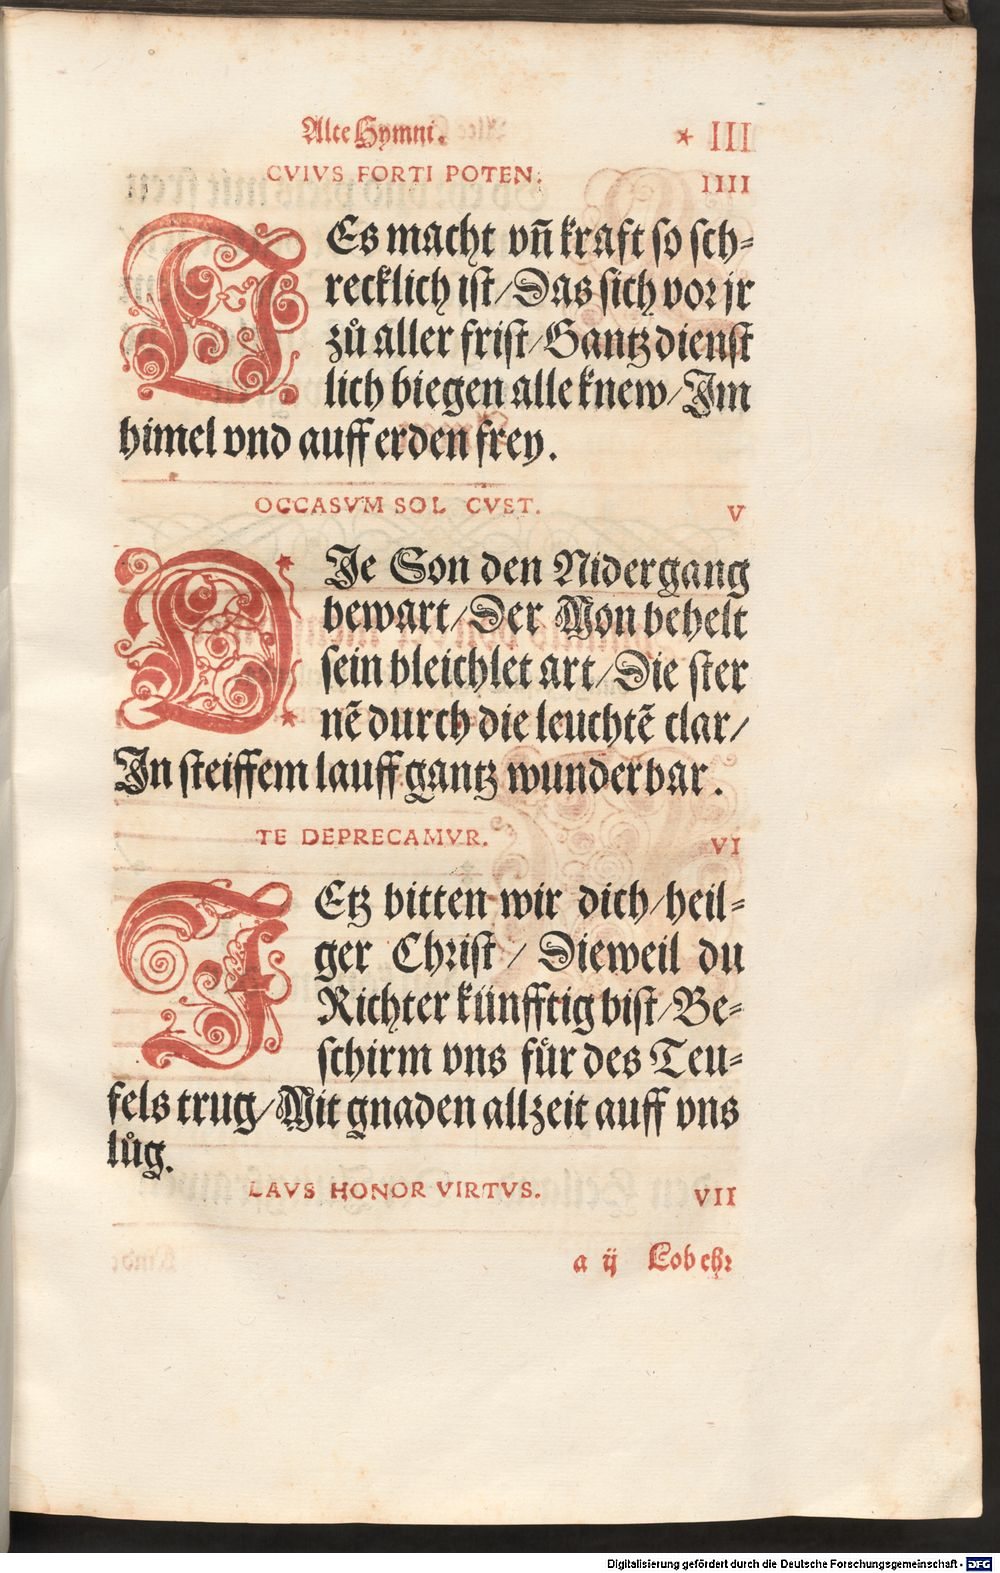 Alte Hymni. * III
CVIVS FORTI POTEN. IIII
WEs macht vñ kraft so sch⸗
recklich ist/Das sich vor jr
zů aller frist/Gantz dienst
lich biegen alle knew/Im
himel vnd auff erden frey.
OCCASVM SOL CVST. V
DJe Son den Nidergang
bewart/Der Mon behelt
sein bleichlet art/Die ster
nẽ durch die leuchtẽ clar/
In steiffem lauff gantz wunderbar.
TE DEPRECAMVR. VI
IEtz bitten wir dich/heil⸗
ger Christ/ Dieweil du
Richter künfftig bist/Be⸗
schirm vns fůr des Teu⸗
fels trug/Mit gnaden allzeit auff vns
lůg.
LAVS HONOR VIRTVS. VII
a ij Lob ehr
Digitalisierung gefördert durch die Deutsche Forschungsgemeinschaft - DFG